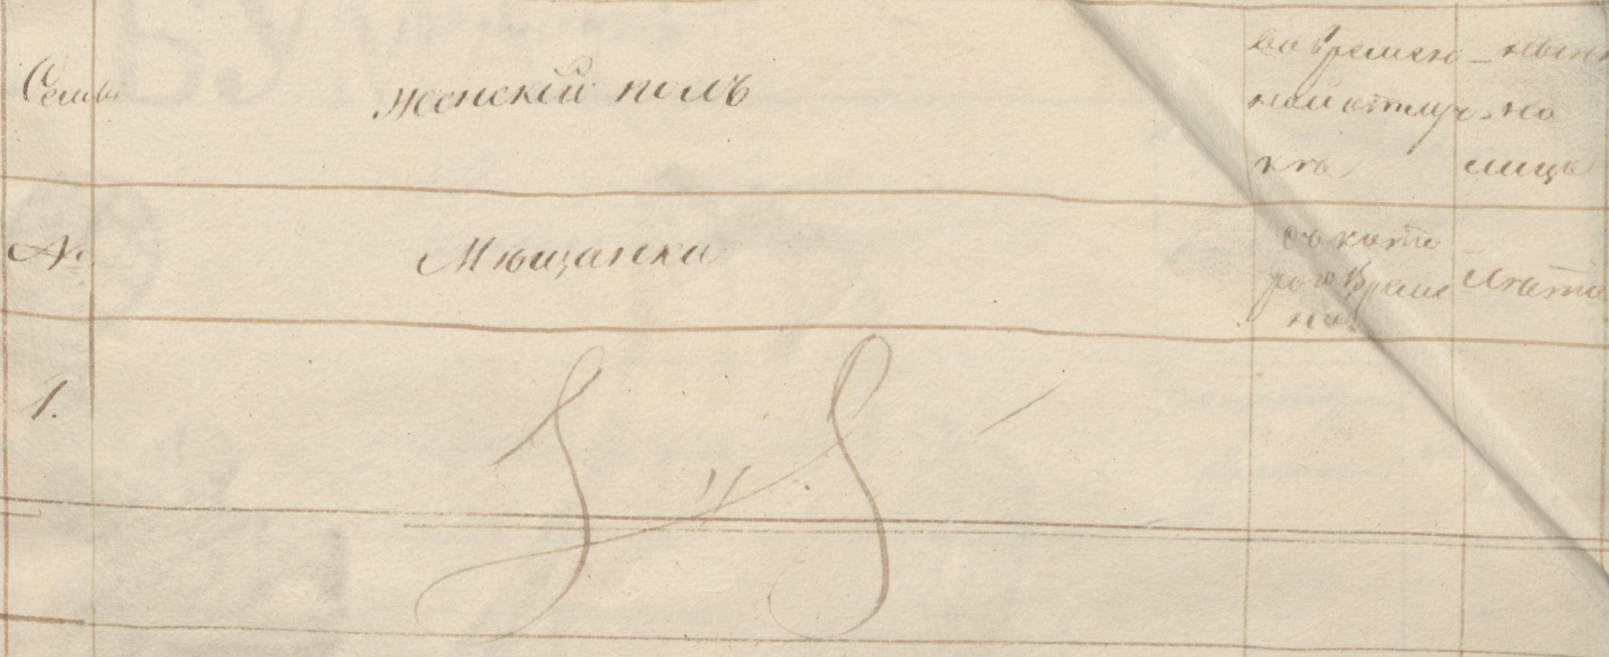 Семьи
Женский полъ
во времен
ной отлуч
кѣ
нынѣ
на
лицо
№
Мѣщанки
съ кото
раго Време
ни
Лѣта
1.